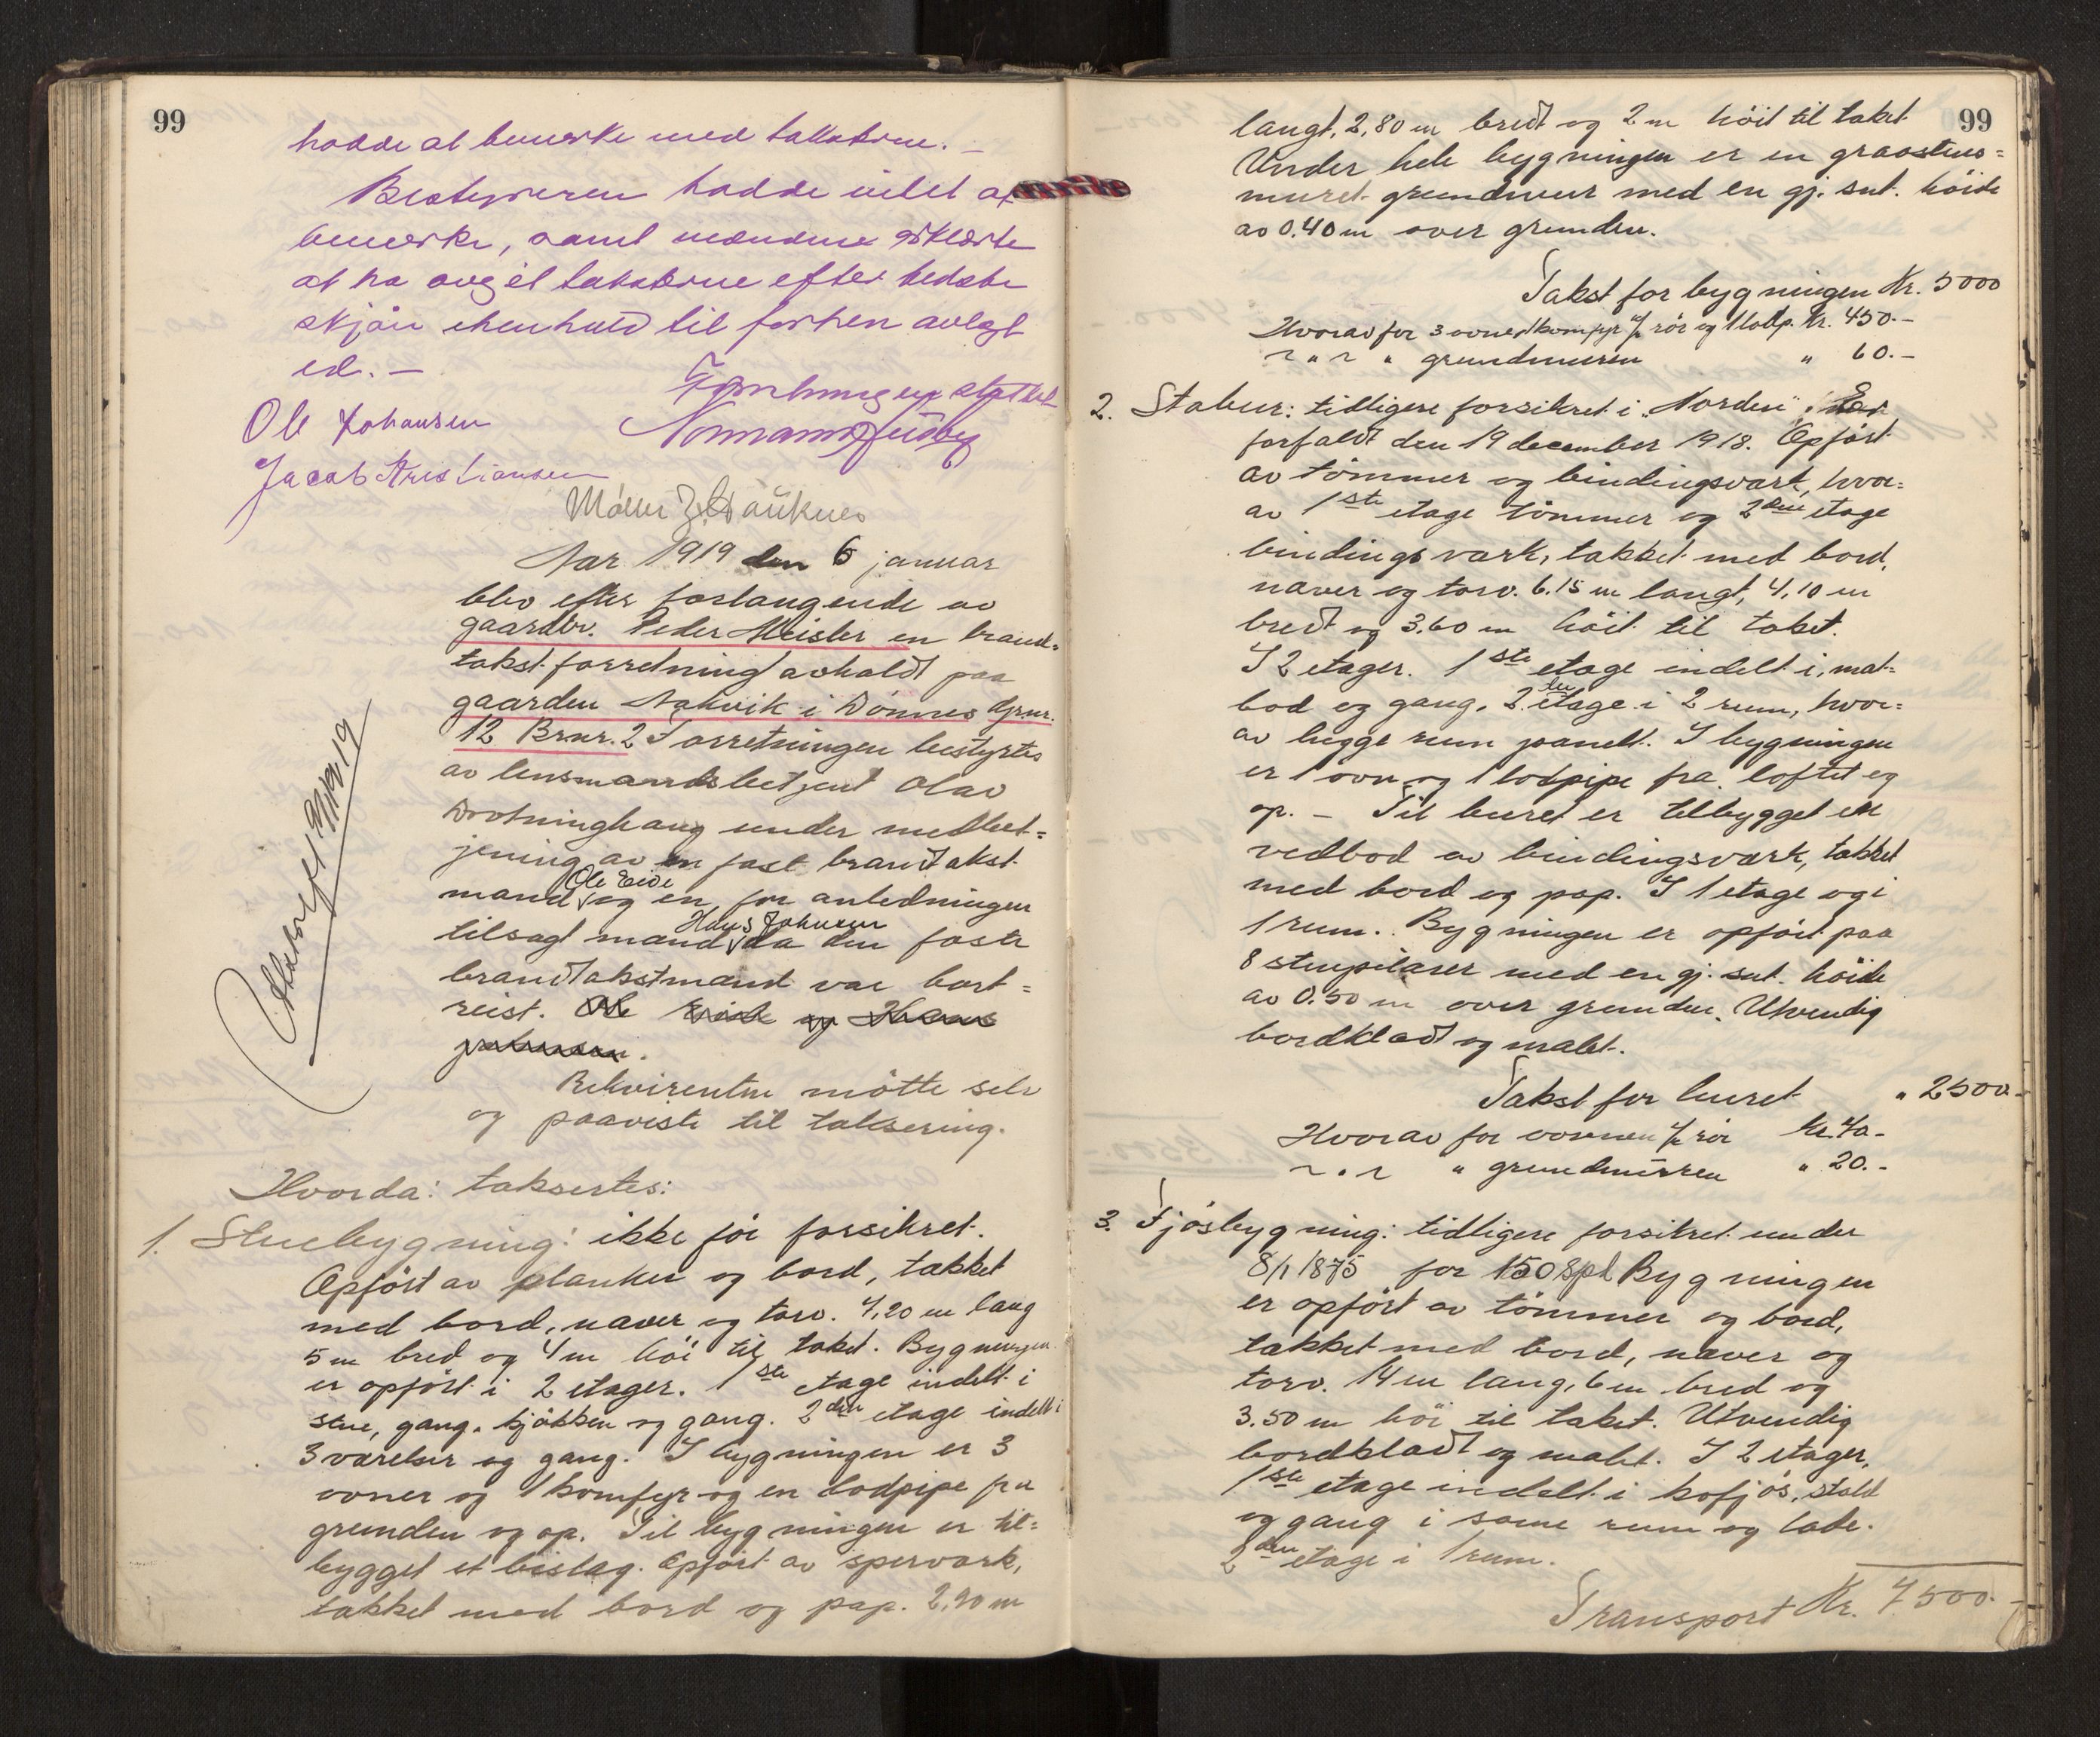 99
hadde at bemerke med takstene. -
Bestyreren hadde intet at
bemerke, samt mændene erklærte
at ha avgit taksterne efter bedste
skjøn i henhold til forhen avlagt
ed. -
Forretningen sluttet
Ole Johansen
Jacob Kristiansen
Aar 1919 den 6 januar
blev efter forlangende av
gaardbr. Peder Meisler en brand=
takst forretning avholdt paa
gaarden Nakvik i Dønnes Grnr.
12 Brnr. 2 Forretningen bestyrtes
av lensmandsbetjent Olav
Drotninghaug under medbet=
jening av en fast brandtakst
Ole Eide
mand og en for anledningen
Hans Johnsen
tilsagt mand da den faste
brandtakstmand var bort=
reist. Ole Eide og Hans
Johnsen.
Rekvirenten møtte selv
og paaviste til taksering.
Hvorda: taksertes:
1. Stuebygning: ikke før forsikret.
Opført av planker og bord, tækket
med bord, næver og torv. 7,20 m lang
5 m bred og 4 m høi til taket. Bygningen
er opført i 2 etager. 1ste etage indelt i
stue, gang, kjøkken og gang. 2den etage indelt i
3 værelser og gang. I bygningen er 3
ovner og 1 komfyr og en lodpipe fra
grunden og op. Til bygningen er til=
bygget et bislag. Opført av sperværk,
tækket med bord og pap. 2,90 m
99
langt, 2,80 m bredt og 2 m høit til taket
Under hele bygningen er en graastens=
muret grundmur med en gj. snt. høide
av 0.40 m over grunden.
Takst for bygningen Kr. 5000
Hvorav for 3 ovner 1 komfyr m/ rør og 1 lodp. Kr. 450.-
" " " grundmuren " 60.-
2. Stabur: tidligere forsikret i "Norden"
forfaldt den 19 december 1918. Opført
av tømmer og bindingsværk, hvor=
av 1ste etage tømmer og 2den etage
bindingsværk, tækket med bord,
næver og torv. 6.15 m langt, 4,10 m
bredt og 3.60 m høit til taket.
I 2 etager. 1ste etage indelt i, mat=
bod og gang, 2den etage i 2 rum, hvor=
av begge rum panelt. I bygningen
er 1 ovn og 1 lodpipe fra loftet og
op. - Til buret er tilbygget en
vedbod av bindingsværk, tækket
med bord og pap. I 1 etage og i
1 rum. Bygningen er opført paa
8 stenpilarer med en gj. snt. høide
av 0.50 m over grunden. Utvendig
bordklædt og malet.
Takst for buret " 2500.-
Hvorav for ovnen m/ rør Kr. 40.-
" " " grundmuren " 20.-
3. Fjøsbygning: tidligere forsikret under
8/1 1875 for 150 Spd Bygningen
er opført av tømmer og bord,
tækket med bord, næver og
torv. 14 m lang, 6 m bred og
3.50 m høi til taket. Utvendig
bordklædt og malet. I 2 etager,
1ste etage indelt i kofjøs, stald
og gang i same rum og lade.
2den etage i 1 rum.
Transport Kr. 7500.-